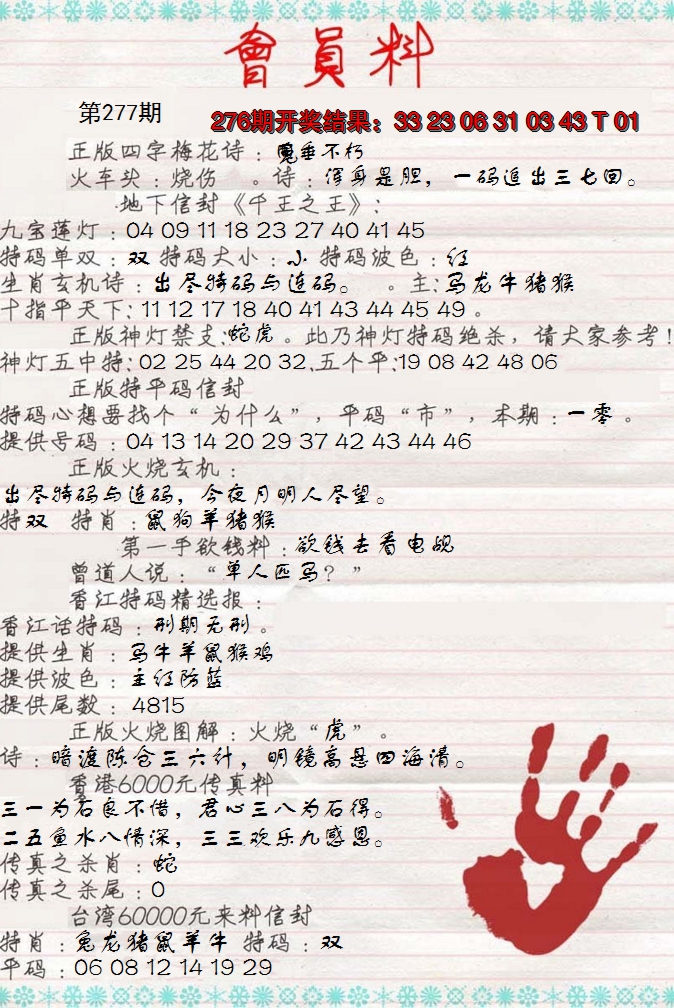 會員料
第277期
276期开奖结果：33 23 06 31 03 43 T 01
正版四字梅花诗：魂垂不朽
火车头：烧伤 。诗：浑身是胆，一码追出三七回。
地下信封《千王之王》：
九宝莲灯：04 09 11 18 23 27 40 41 45
特码单双：双 特码大小：小 特码波色：红
生肖玄机诗：出尽特码与连码。 。主：马龙牛猪猴
十指平天下：11 12 17 18 40 41 43 44 45 49 。
正版神灯禁支：蛇虎 。此乃神灯特码绝杀，请大家参考！
神灯五中特：02 25 44 20 32.五个平：19 08 42 48 06
正版特平码信封
特码心想要找个“为什么”，平码“市”，本期：一零 。
提供号码：04 13 14 20 29 37 42 43 44 46
正版火烧玄机：
出尽特码与连码，今夜月明人尽望。
特双 特肖：鼠狗羊猪猴
第一手欲钱料：欲钱去看电视
曾道人说：“单人匹马？”
香江特码精选报：
香江话特码：刑期无刑。
提供生肖：马牛羊鼠猴鸡
提供波色：主红防蓝
提供尾数：4815
正版火烧图解：火烧“虎”。
诗：暗渡陈仓三六计，明镜高悬四海清。
香港6000元传真料
三一为石良不惜，君心三八为石得。
二五鱼水八情深，三三欢乐九感恩。
传真之杀肖：蛇
传真之杀尾：0
台湾60000元来料信封
特肖：兔龙猪鼠羊牛 特码：双
平码：06 08 12 14 19 29